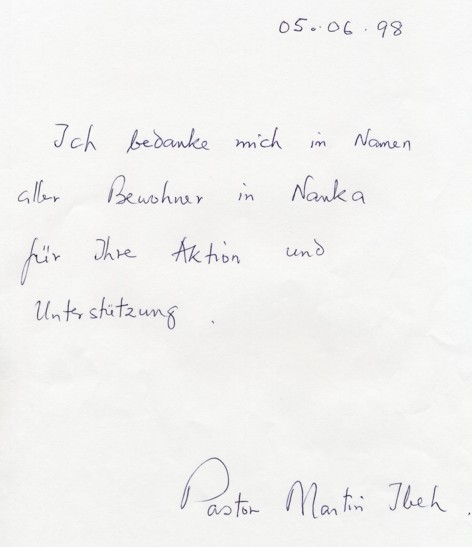 05.06.98
Ich bedanke mich in Namen
aller Bewohner in Nanka
für Ihre Aktion und
Unterstützung.
Pastor Martin Ibeh.